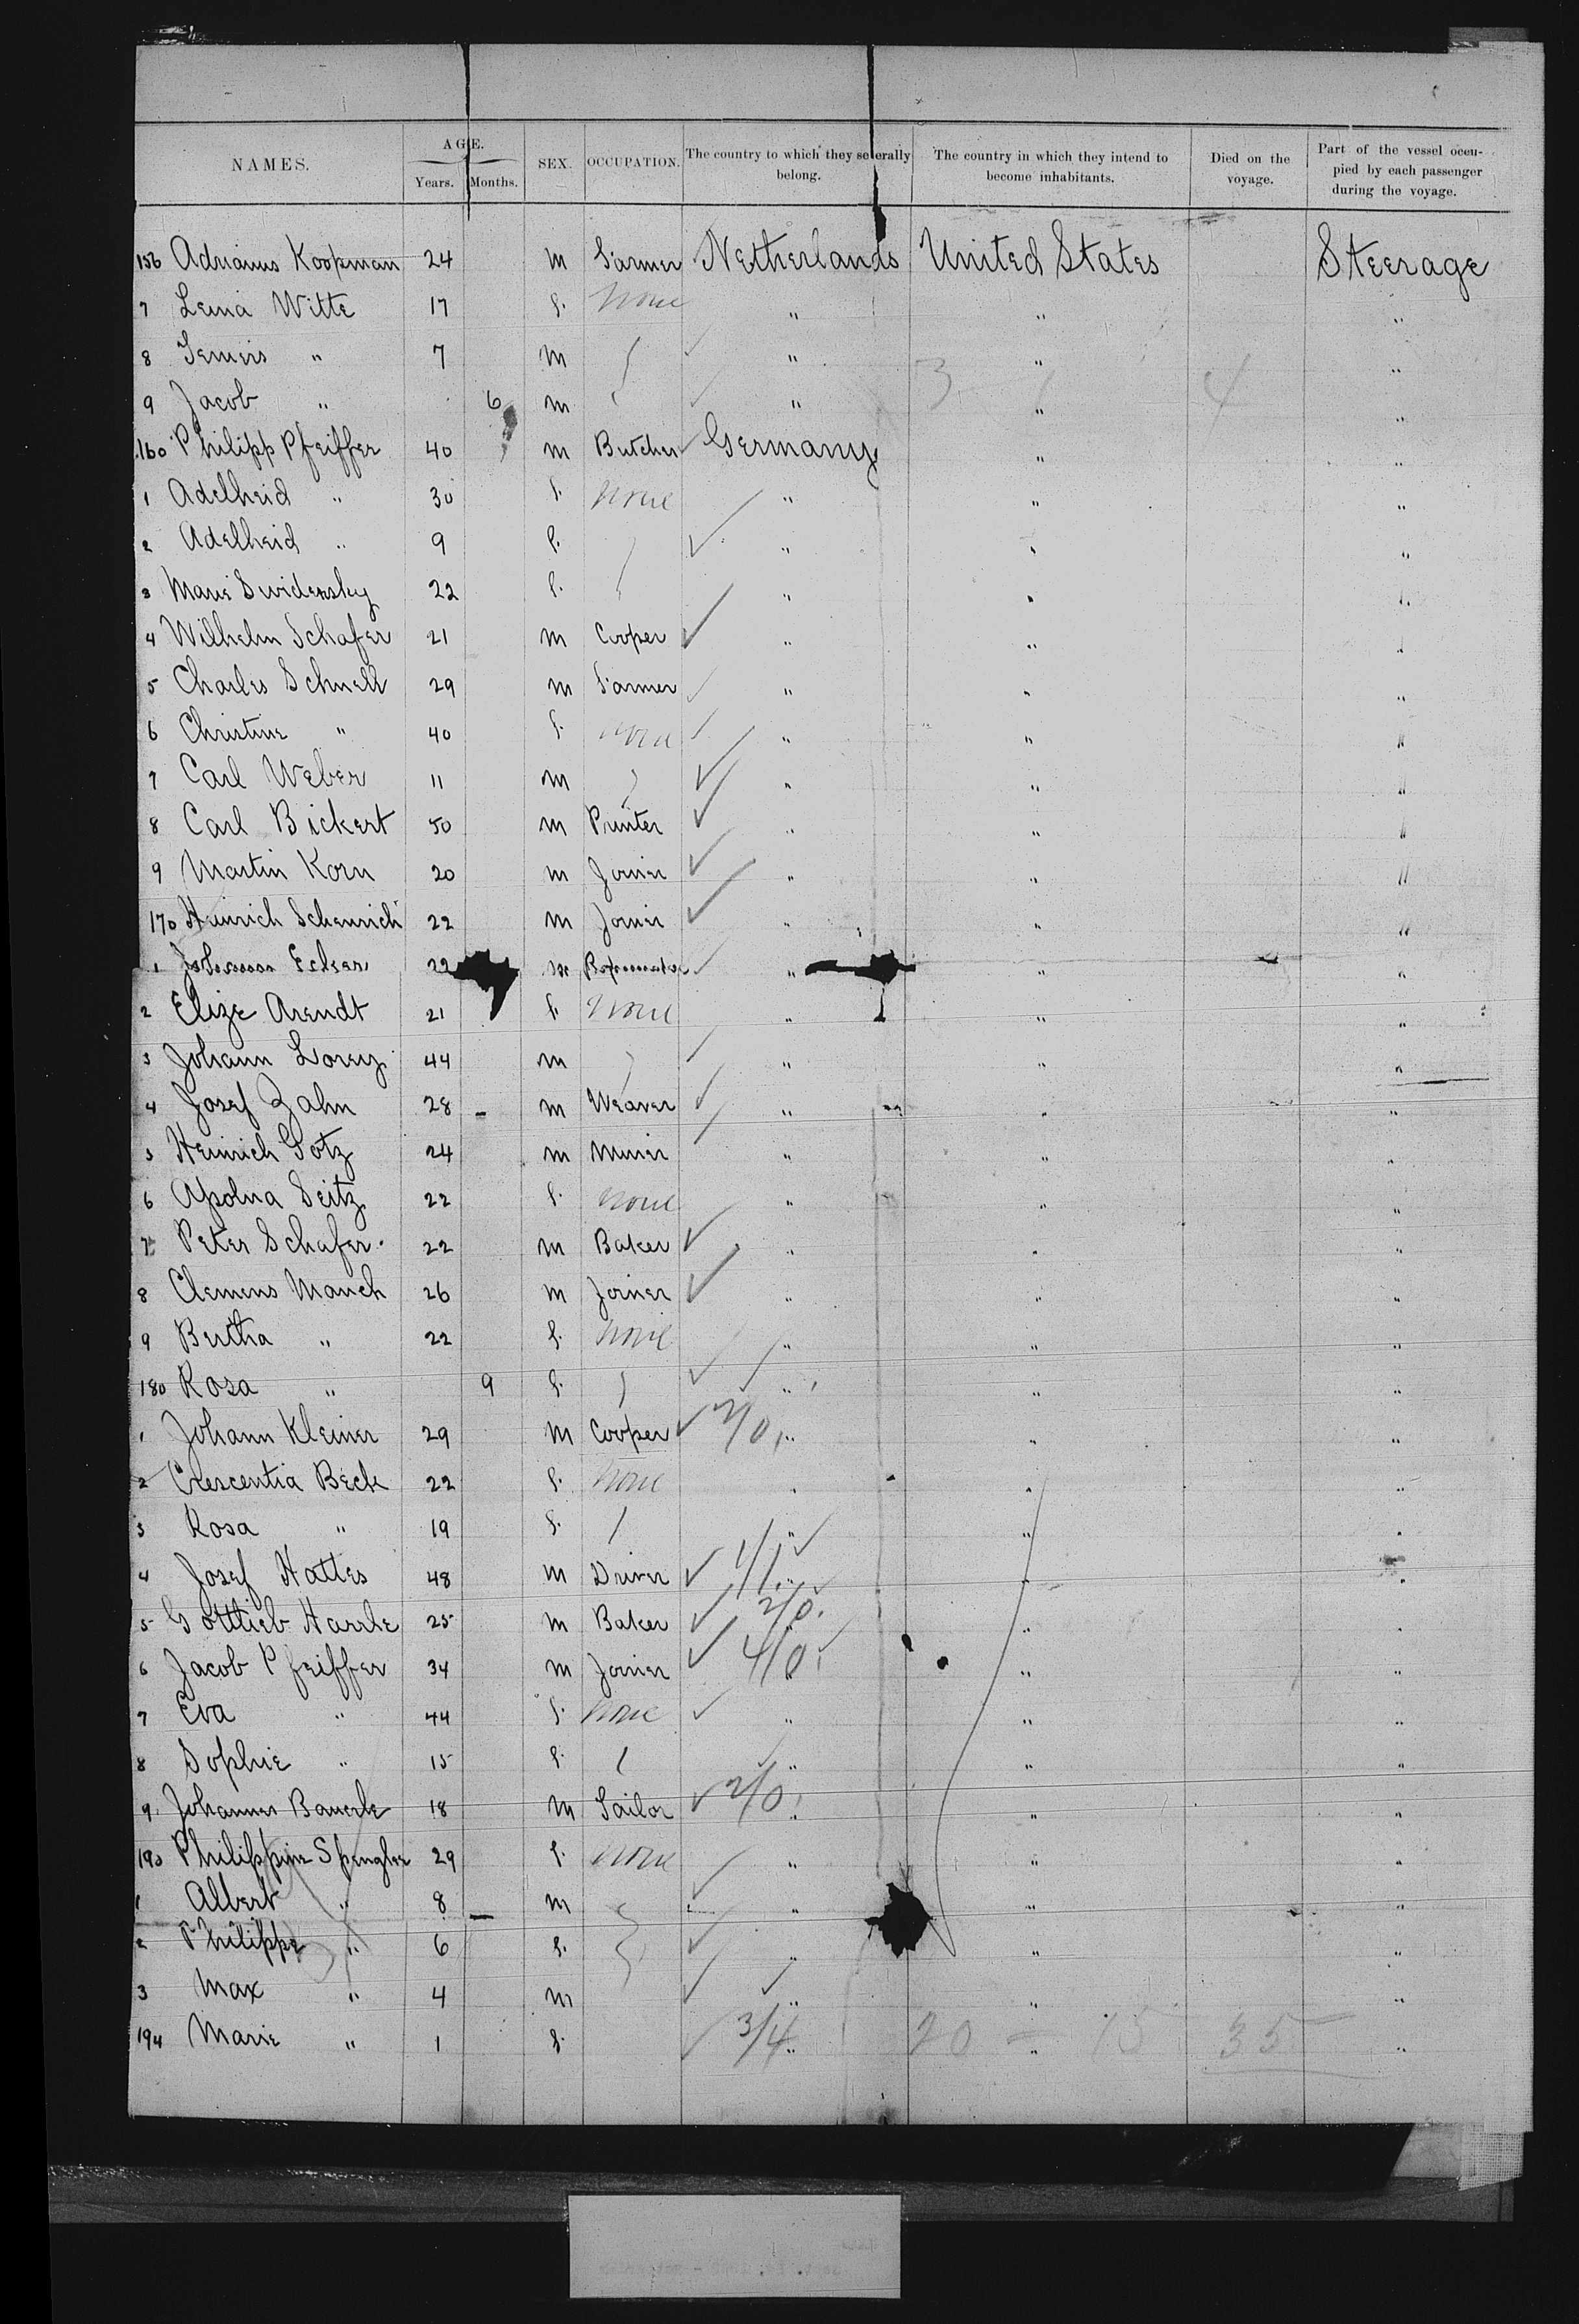 NAMES. AGE. Years. Months. SEX. OCCUPATION. The country to which they severally belong. The country in which they intend to become inhabitants. Died on the voyage. Part of the vessel occupied by each passenger during the voyage.
156 Adrianus Koopman 24 m Farmer Netherlands United States Steerage
7 Lena Witte 17 f. none " " "
8 " 7 m " " "
9 Jacob " 6 m " " "
160 Philipp Pfeiffer 40 m Butcher Germany " "
1 Adelheid " 30 f. none " " "
2 Adelheid " 9 f. " " "
3 Marie Swidensky 22 f. " " "
4 Wilhelm Schafer 21 m Cooper " " "
5 Charles Schnell 29 m Farmer " " "
6 Christine " 40 f. none " " "
7 Carl Weber 11 m " " "
8 Carl Bickert 50 m Printer " " "
9 Martin Korn 20 m Joiner " " "
170 Heinrich Schenrich 22 m Joiner " " "
1 Johann 22 m " " "
2 Elize Arendt 21 f. none " " "
3 Johann Lorenz 44 m " " "
4 Josef Zahn 28 m Weaver " " "
5 Heinrich Gotz 24 m Miner " " "
6 Apolna Seitz 22 f. none " " "
7 Peter Schafer 22 m Baker " " "
8 Clemens Manch 26 m Joiner " " "
9 Bertha " 22 f. none " " "
180 Rosa " 9 f. " " "
1 Johann Kleiner 29 m Cooper 2/0 " " "
2 Crescentia Beck 22 f. none " " "
3 Rosa " 19 f. " " "
4 Josef Hattes 48 m Driver 1/1 " " "
5 Gottlieb Harrle 25 m Baker 2/0 " " "
6 Jacob Pfeiffer 34 m Joiner 4/0 " " "
7 Eva " 44 f. none " " "
8 Sophie " 15 f. " " "
9 Johannes Bauerle 18 m Tailor 2/0 " " "
190 Philippine Spengler 29 f. none " " "
1 Albert " 8 m " " "
2 Philippe " 6 f. " " "
3 Max " 4 m " " "
194 Marie " 1 f. 3/4 " 20 - 15 " 35 "